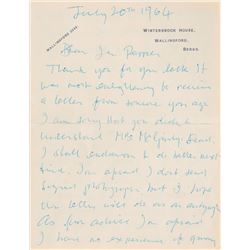 July 20th 1964
WALLINGFORD 2248.
WINTERBROOK HOUSE,
WALLINGFORD,
BERKS.
Dear Jon Pepper
Thank you for your letter It
was most entertaining to receive
a letter from someone your age
I am sorry that you didn't
understand Mrs McGinty's Dead.
I shall endeavour to do better next
time. I am afraid I don't send
signed photographs but I hope
this letter will do as an autograph
As for advice I'm afraid
I have no experience of